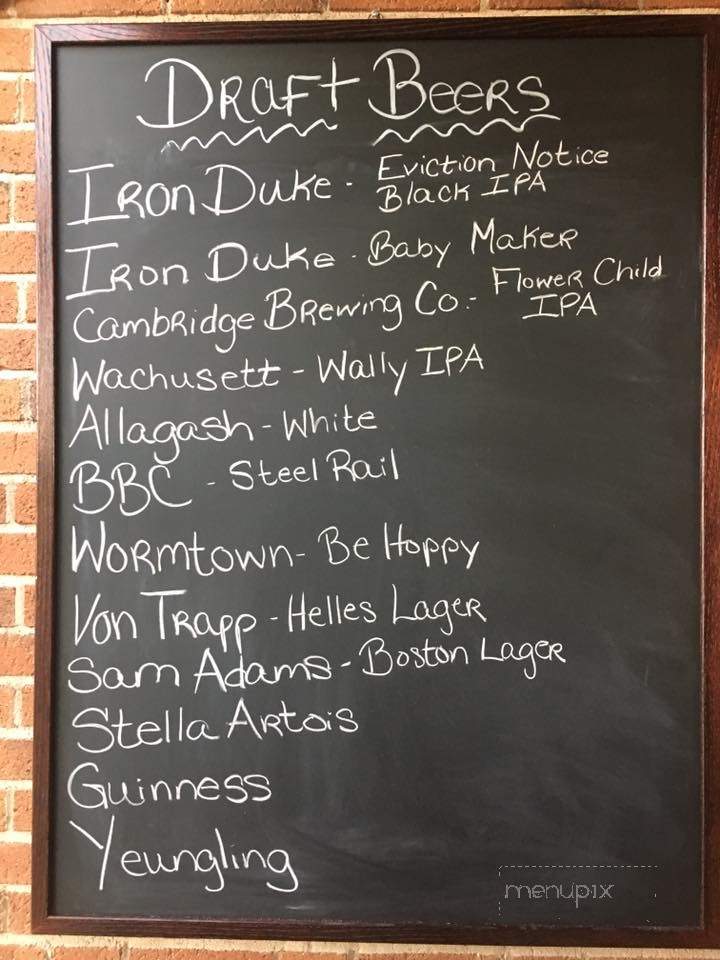 Draft Beers
Iron Duke - Eviction Notice
Black IPA
Iron Duke - Baby Maker
Cambridge Brewing Co. - Flower Child
IPA
Wachusett - Wally IPA
Allagash - White
BBC - Steel Rail
Wormtown - Be Hoppy
Von Trapp - Helles Lager
Sam Adams - Boston Lager
Stella Artois
Guinness
Yeungling
menupix